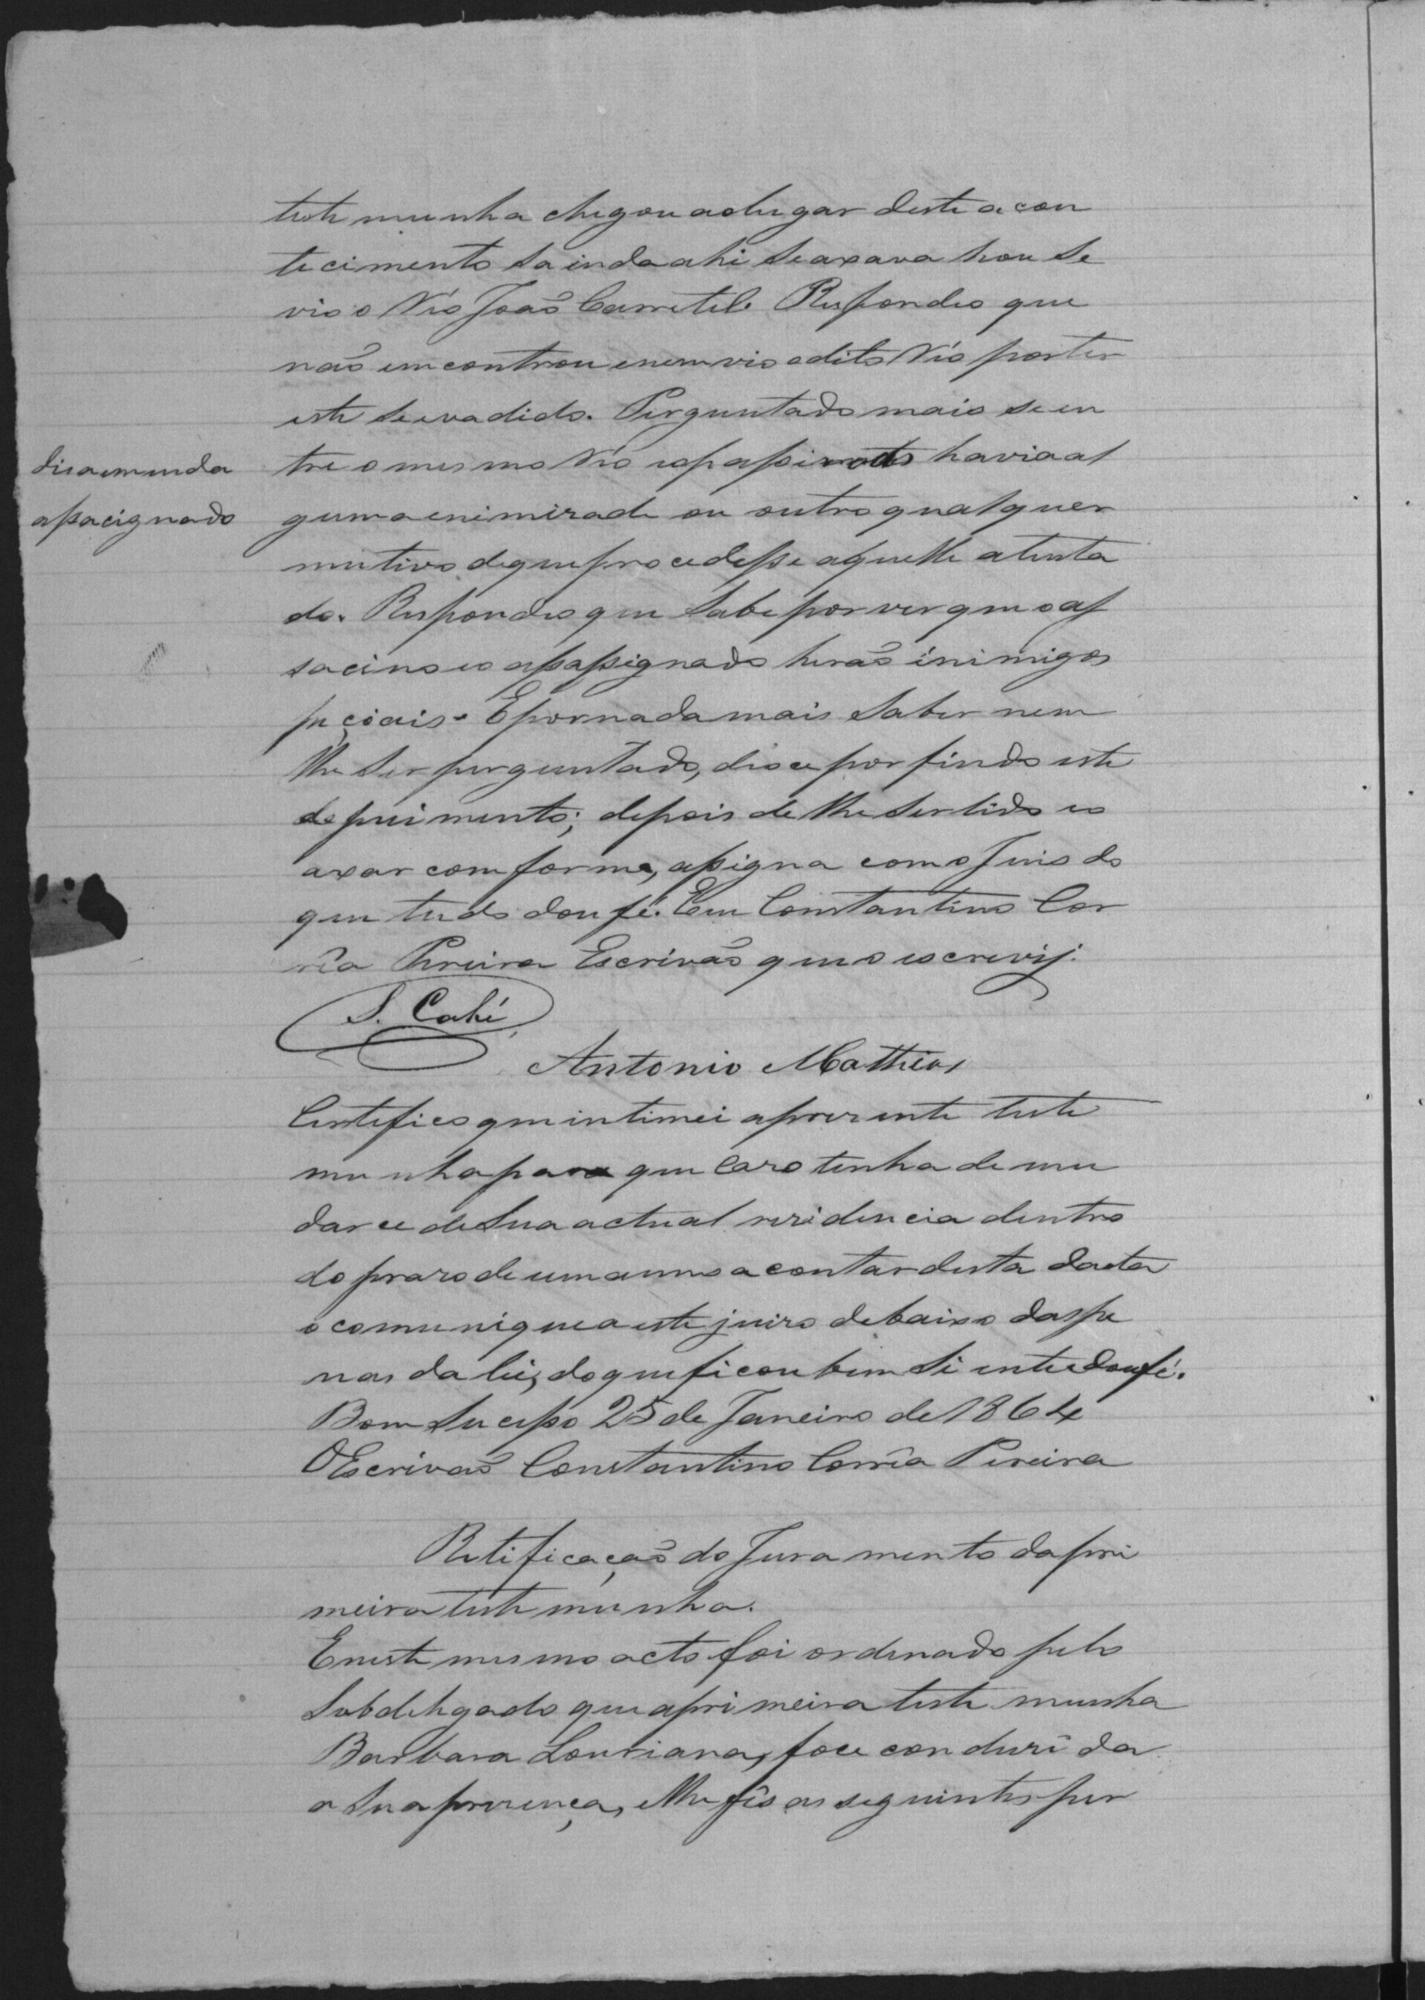 testemunha chegou ao lugar deste acon
tecimento sainda ahi se axava hou se
vio o Réo João Carretel. Respondeo que
não emcontrou e nem vio o dito Réo por ter
este se evadido. Perguntado mais se en
tre o mesmo Réo e o haviaal
disa emenda
apacignado
guma enimizade ou outro qual quer
mutivo de que procedesse aquelle atenta
do. Respondeo que sabe por ver que o as
sacino e o assassignado herão inimigos
peçoais. E por nada mais saber nem
lhe ser perguntado, disce por findo este
depuimento; depois de lhe ser lido eo
axar comforme, assigna com o Juis do
que tudo dou fé. Eeu Constantino Cor
rêa Pereira Escrivão que o escrevij.
S. Cahé
Antonio Mathias
Certifico que intimei aprezente teste
munha para que cazo tenha de mu
darce de sua actual rezidencia dentro
do prazo de um anno a contar desta dacta
o comunique a este juizo debaixo das pe
nas da lei, do que ficou bem siente doufé.
Bom Sucesso 25 de Janeiro de 1864
O Escrivão Constantino Corrêa Pereira
Retificação do Juramento da pri
meira testemunha.
E neste mesmo acto foi ordenado pelo
Subdelegado que aprimeira teste munha
Barbara Louriana, foce conduzida
a sua prezença, e lhe fês as seguintes per